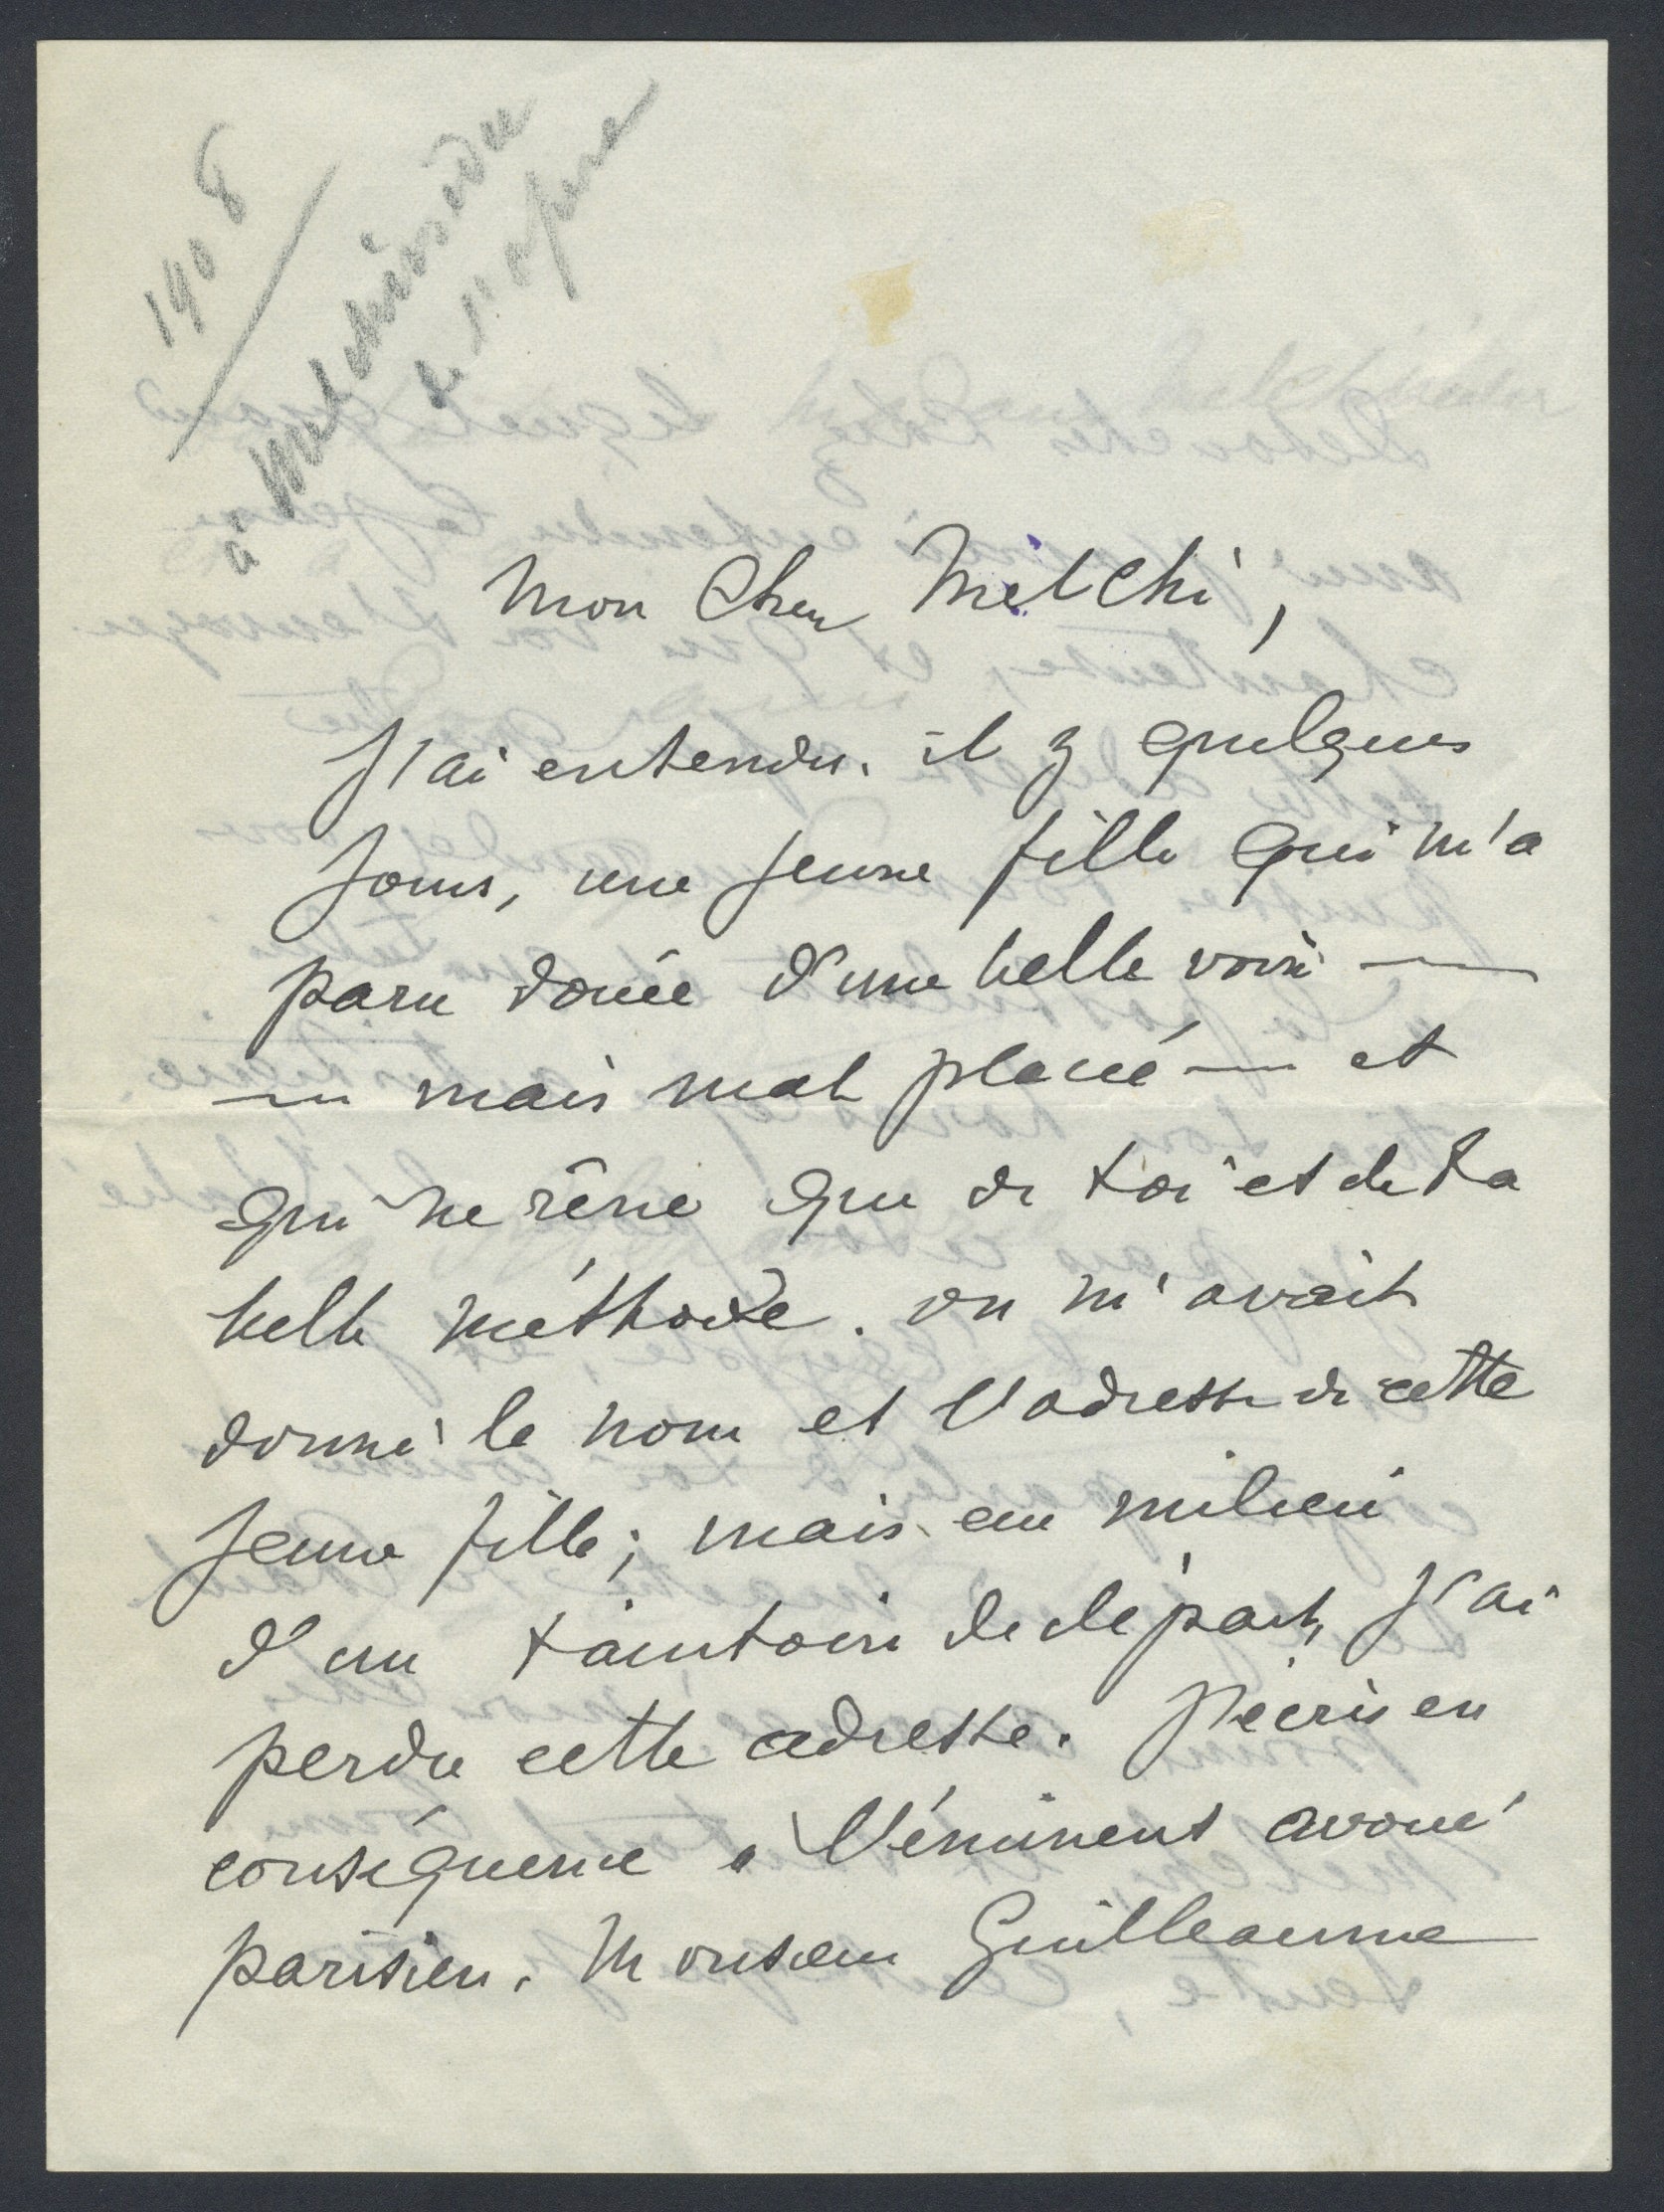 1908
à Melchissédec
de l'opéra
Mon Cher Melchi,
J'ai entendu, il y quelques
jours, une jeune fille qui m'a
paru douée d'une belle voix —
— mais mal placée — et
qui ne rêve que de toi et de ta
belle méthode. On m'avait
donné le nom et l'adresse de cette
jeune fille; mais, au milieu
d'un tintoin de départ, j'ai
perdu cette adresse. J'écris en
conséquence à l'éminent avoué
parisien, Monsieur Guilleaume